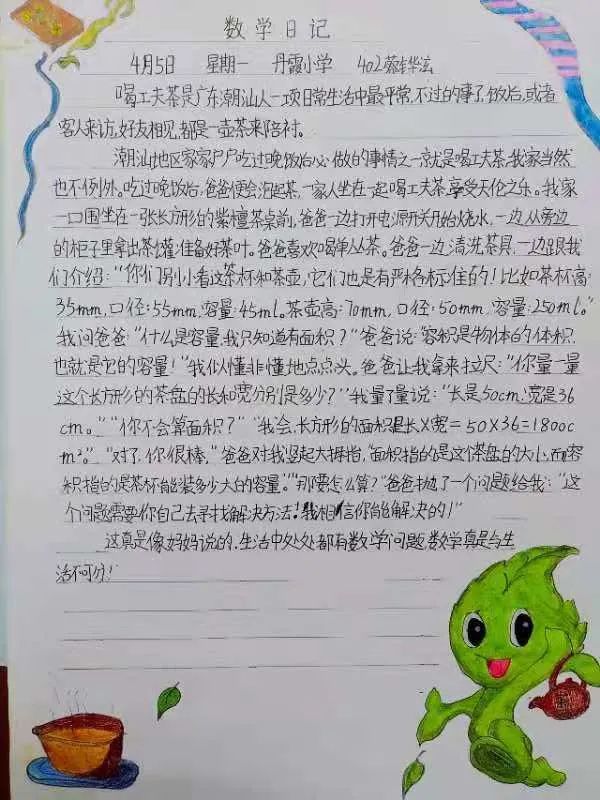 数学日记
4月5日 星期一 丹霞小学 402
喝工夫茶是广东潮汕人一项日常生活中最平常不过的事了,饭后,或者
客人来访,好友相见,都是一壶茶来陪衬。
潮汕地区家家户户吃过晚饭后必做的事情之一就是喝工夫茶,我家当然
也不例外。吃过晚饭后,爸爸便会泡起茶,一家人坐在一起喝工夫茶,享受天伦之乐。我家
一口围坐在一张长方形的紫檀茶桌前,爸爸一边打开电源开关开始烧水,一边从旁边
的柜子里拿出茶罐准备好茶叶。爸爸喜欢喝单丛茶。爸爸一边清洗茶具,一边跟我
们介绍:“你们别小看这茶杯和茶壶,它们也是有严格各标准的!比如茶杯高:
35mm,口径:55mm,容量:45ml。茶壶高:70mm,口径:50mm,容量:250ml。”
我问爸爸:“什么是容量,我只知道有面积?”爸爸说:“容积是物体的体积,
也就是它的容量!”我似懂非懂地点点头。爸爸让我拿来拉尺:“你量一量
这个长方形的茶盘的长和宽分别是多少?”我量了量说:“长是50cm,宽是36
cm。”“你不会算面积?”“我会,长方形的面积是长×宽=50×36=1800c
m²。”“对了,你很棒,”爸爸对我竖起大拇指,“面积指的是这个茶盘的大小,而容
积指的是茶杯能装多少大的容量。”“那要怎么算?”爸爸抛了一个问题给我:“这
个问题需要你自己去寻找解决方法!我相信你能解决的!”
这真是像妈妈说的,生活中处处都有数学问题,数学真是与生
活不可分!